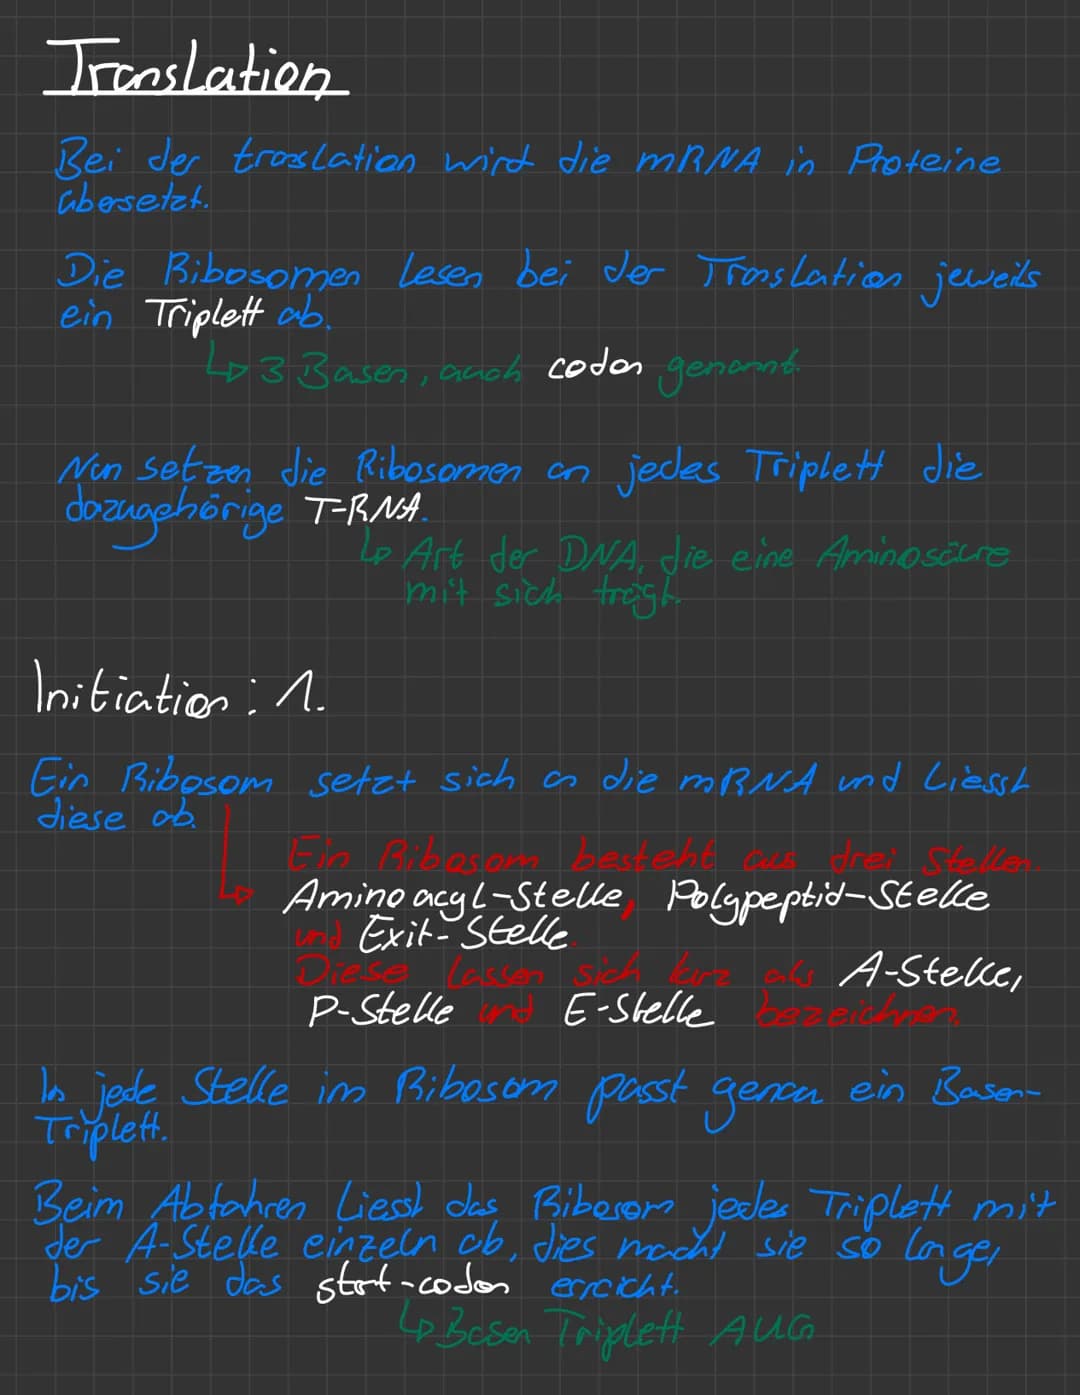 Translation
Bei der translation wird die mRNA in Proteine
übersetzt.
Die Ribosomen lesen bei der Translation jeweils
ein Triplett ab.
↳ 3 Basen, auch codon genannt.
Nun setzen die Ribosomen an jedes Triplett die
dazugehörige T-RNA.
↳ Art der DNA, die eine Aminosäure
mit sich trägt.
Initiation: 1.
Ein Ribosom setzt sich an die mRNA und liesst
diese ab.
Ein Ribosom besteht aus drei Stellen.
Aminoacyl-Stelle, Polypeptid-Stelle
und Exit-Stelle.
Diese lassen sich kurz als A-Stelle,
P-Stelle und E-Stelle bezeichnen.
In jede Stelle im Ribosom passt genau ein Basen-
Triplett.
Beim Abfahren liesst das Ribosom jedes Triplett mit
der A-Stelle einzeln ab, dies macht sie so lange,
bis sie das start-codon erreicht.
↳ Basen Triplett AUG